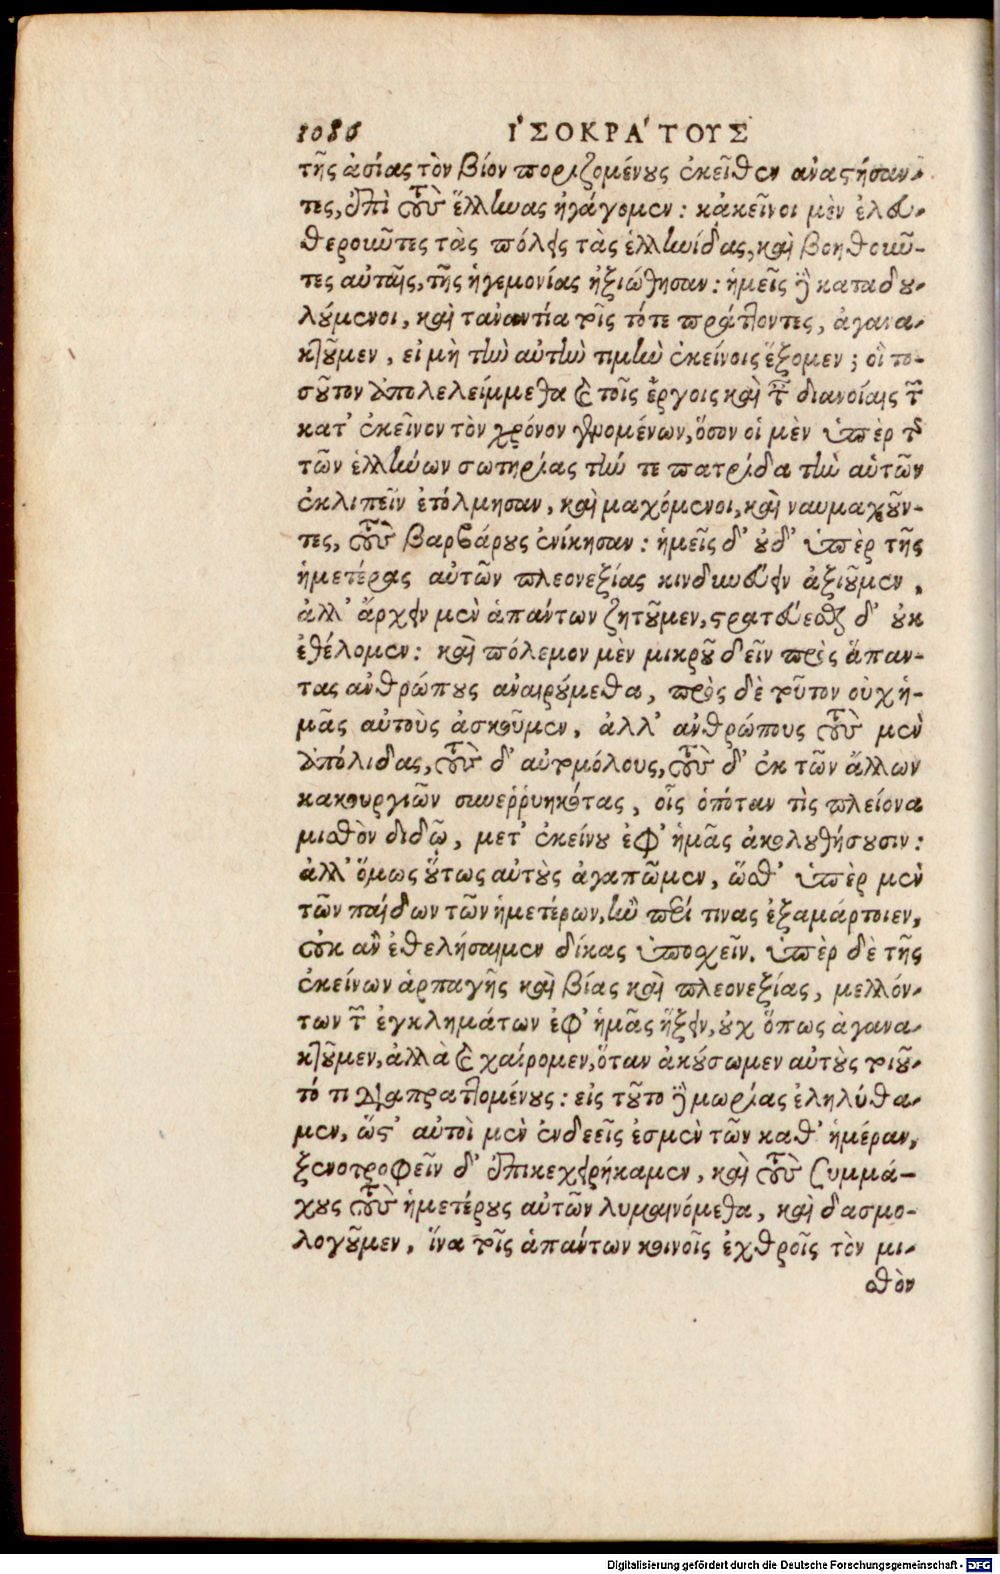 1086 ἸΣΟΚΡΆΤΟΥΣ
τῆς ἀσίας τὸν βίον ποριζομένους ἐκεῖθεν ἀναστήσαν-
τες, ἐπὶ τοὺς ἕλληνας ἠγάγομεν: κἀκεῖνοι μὲν ἐλευ-
θεροῦντες τὰς πόλεις τὰς ἑλληνίδας, καὶ βοηθοῦν-
τες αὐταῖς, τῆς ἡγεμονίας ἠξιώθησαν: ἡμεῖς δὲ καταδου-
λούμενοι, καὶ τἀναντία τοῖς τότε πράττοντες, ἀγανα-
κτοῦμεν, εἰ μὴ τὴν αὐτὴν τιμὴν ἐκείνοις ἕξομεν; οἳ το-
σοῦτον ἀπολελείμμεθα καὶ τοῖς ἔργοις καὶ ταῖς διανοίαις τῶν
κατ' ἐκεῖνον τὸν χρόνον γενομένων, ὅσον οἱ μὲν ὑπὲρ τῆς
τῶν ἑλλήνων σωτηρίας τήν τε πατρίδα τὴν αὑτῶν
ἐκλιπεῖν ἐτόλμησαν, καὶ μαχόμενοι, καὶ ναυμαχοῦν-
τες, τοὺς βαρβάρους ἐνίκησαν: ἡμεῖς δ' οὐδ' ὑπὲρ τῆς
ἡμετέρας αὐτῶν πλεονεξίας κινδυνεύειν ἀξιοῦμεν,
ἀλλ' ἄρχειν μὲν ἁπάντων ζητοῦμεν, στρατεύεσθαι δ' οὐκ
ἐθέλομεν: καὶ πόλεμον μὲν μικροῦ δεῖν πρὸς ἅπαν-
τας ἀνθρώπους ἀναιρούμεθα, πρὸς δὲ τοῦτον οὐχ ἡ-
μᾶς αὐτοὺς ἀσκοῦμεν, ἀλλ' ἀνθρώπους τοὺς μὲν
ἀπόλιδας, τοὺς δ' αὐτομόλους, τοὺς δ' ἐκ τῶν ἄλλων
κακουργιῶν συνεῤῥυηκότας, οἷς ὁπόταν τὶς πλείονα
μισθὸν διδῷ, μετ' ἐκείνου ἐφ' ἡμᾶς ἀκολουθήσουσιν:
ἀλλ' ὅμως οὕτως αὐτοὺς ἀγαπῶμεν, ὥσθ' ὑπὲρ μὲν
τῶν παίδων τῶν ἡμετέρων, ἢν περί τινας ἐξαμάρτοιεν,
οὐκ ἂν ἐθελήσαιμεν δίκας ὑποσχεῖν. ὑπὲρ δὲ τῆς
ἐκείνων ἁρπαγῆς καὶ βίας καὶ πλεονεξίας, μελλόν-
των τῶν ἐγκλημάτων ἐφ' ἡμᾶς ἥξειν, οὐχ ὅπως ἀγανα-
κτοῦμεν, ἀλλὰ καὶ χαίρομεν, ὅταν ἀκούσωμεν αὐτοὺς τοιοῦ-
τό τι διαπραττομένους: εἰς τοῦτο δὲ μωρίας ἐληλύθα-
μεν, ὥστ' αὐτοὶ μὲν ἐνδεεῖς ἐσμὲν τῶν καθ' ἡμέραν,
ξενοτροφεῖν δ' ἐπικεχειρήκαμεν, καὶ τοὺς συμμά-
χους τοὺς ἡμετέρους αὐτῶν λυμαινόμεθα, καὶ δασμο-
λογοῦμεν, ἵνα τοῖς ἁπάντων κοινοῖς ἐχθροῖς τὸν μι-
σθὸν
Digitalisierung gefördert durch die Deutsche Forschungsgemeinschaft - DFG